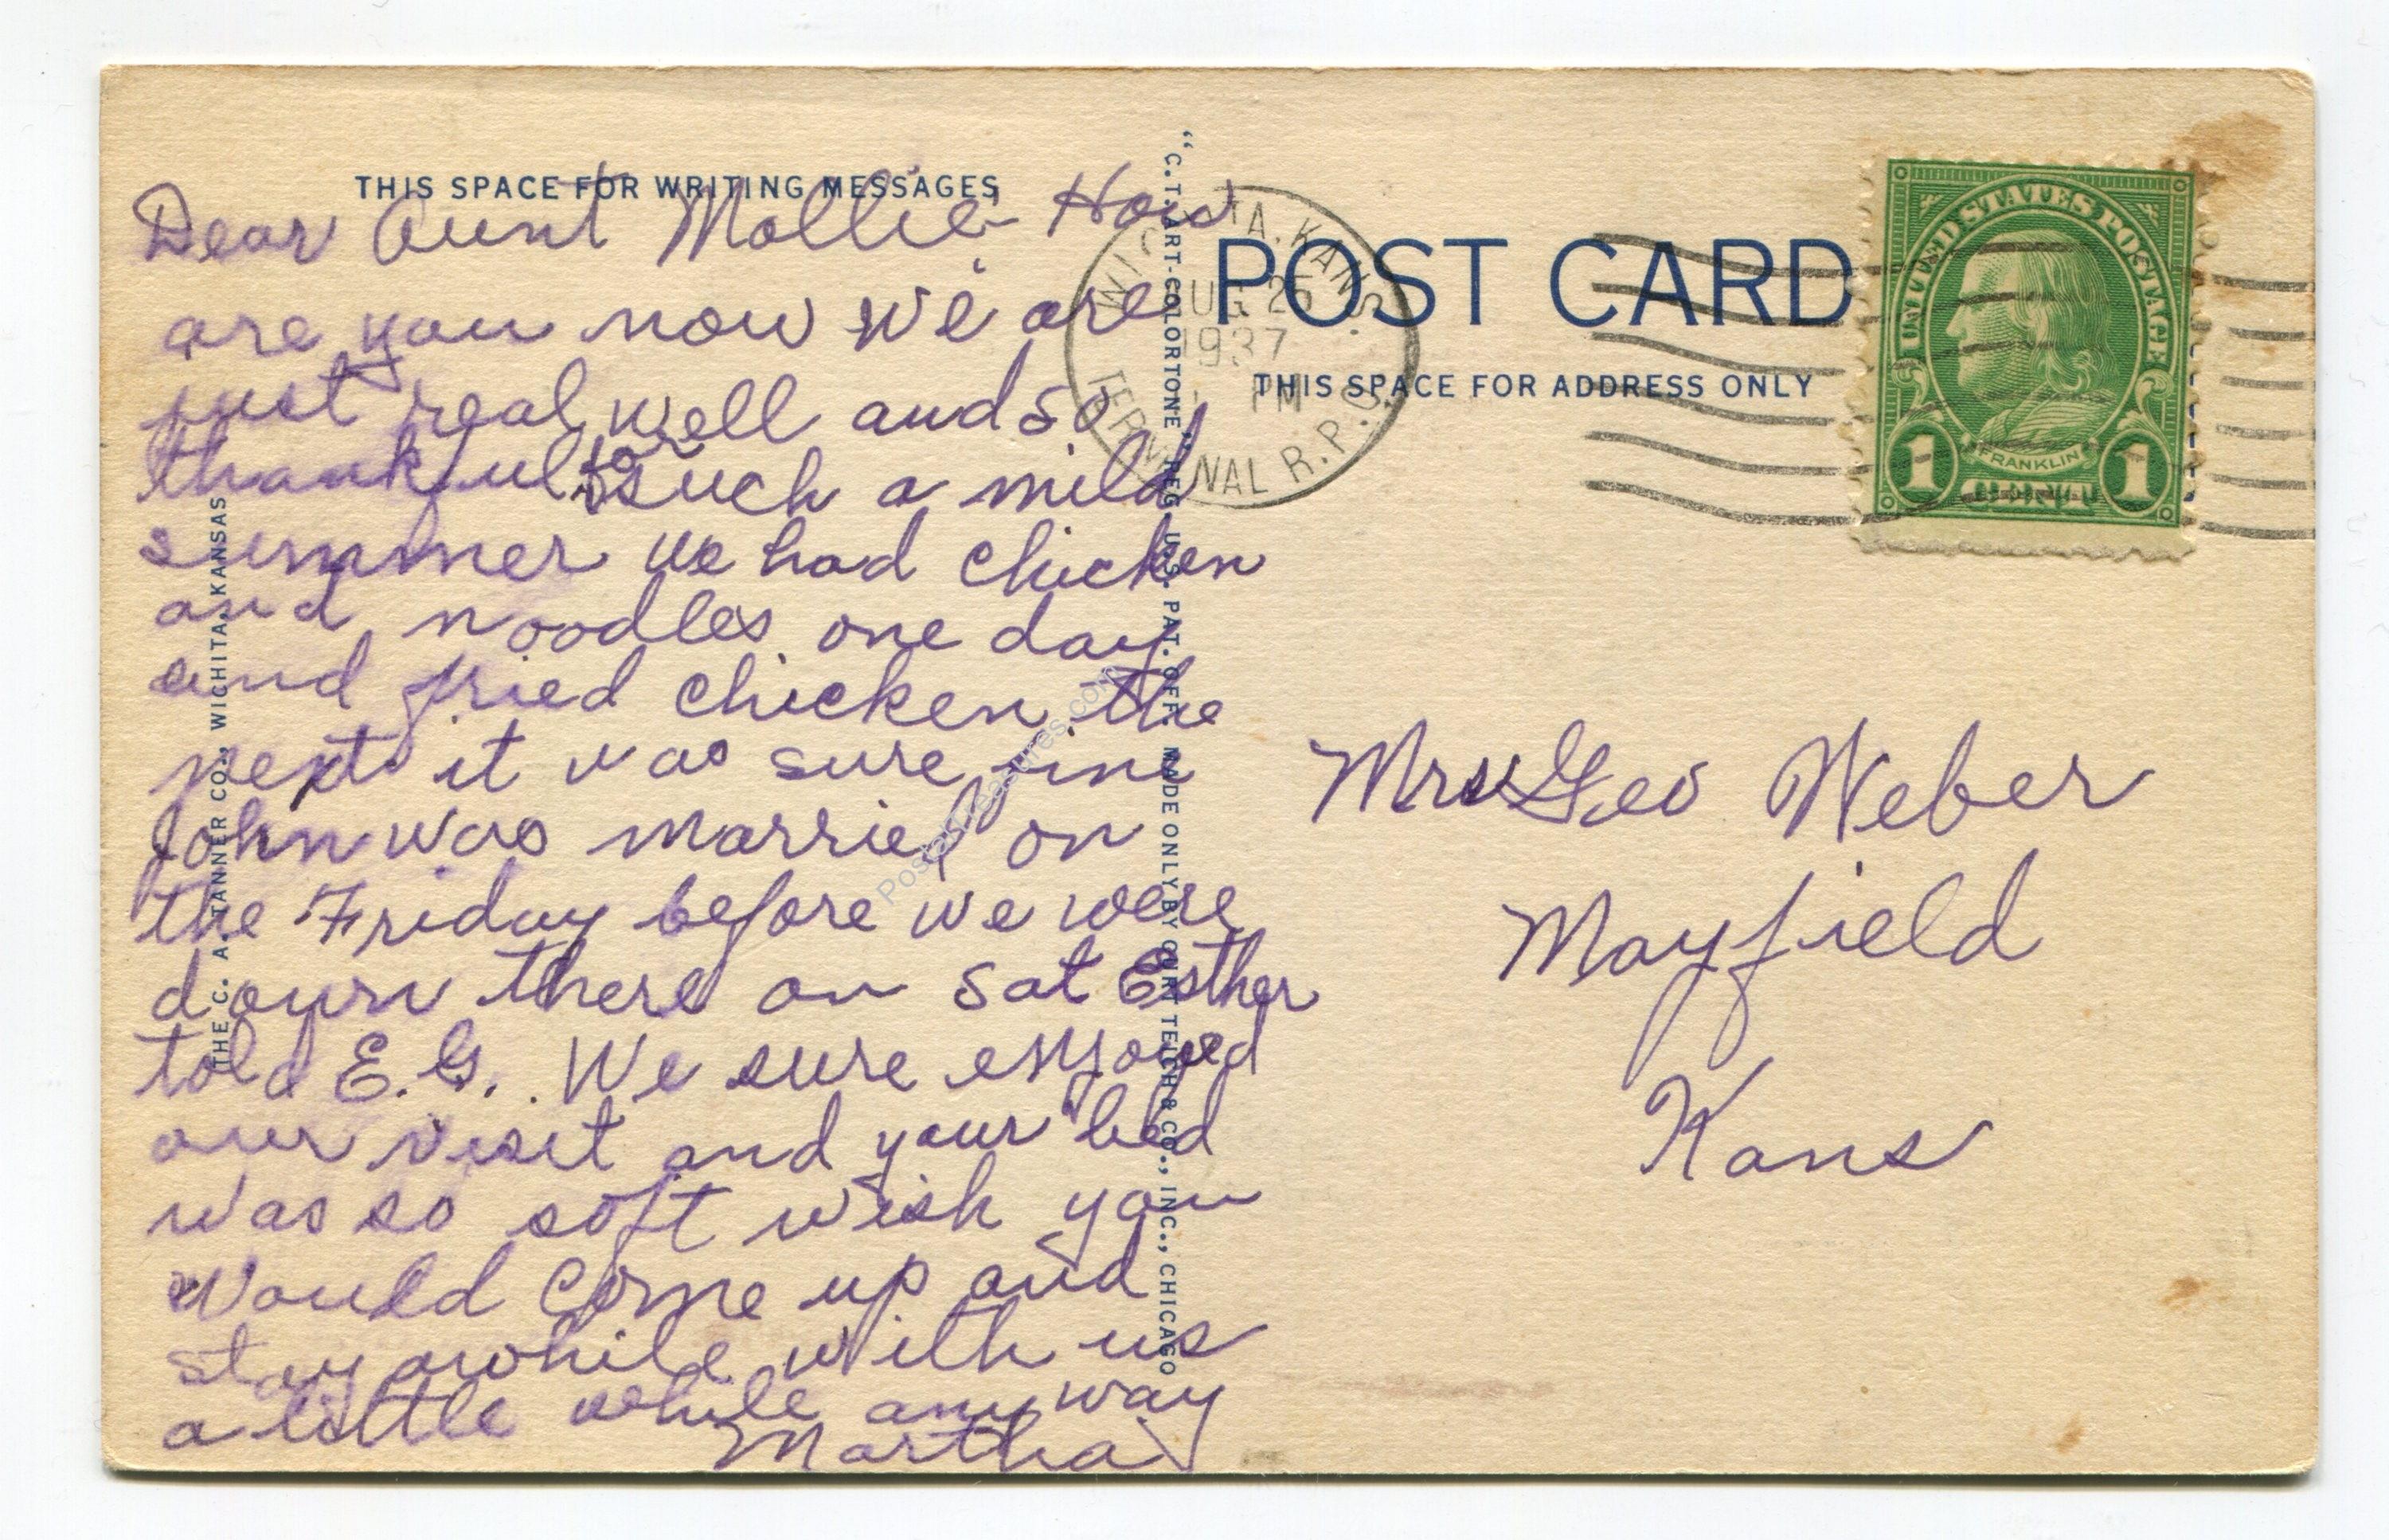 THIS SPACE FOR WRITING MESSAGES
Dear Aunt Mollie How
are you now we are
just real well and so
thankful for such a mild
summer we had chicken
and noodles one day
and fried chicken the
next it was sure fine
John was married on
the Friday before we were
down there on Sat Esther
told E.G. We sure enjoyed
our visit and your bed
was so soft wish you
would come up and
stay awhile with us
a little while any way
Martha
THE C. A. TANNER CO., WICHITA, KANSAS
"C.T. ART-COLORTONE" REG. U.S. PAT. OFF. MADE ONLY BY CURT TEICH & CO., INC., CHICAGO
WICHITA, KANS.
AUG 25
1937
PM
TERMINAL R.P.O.
POST CARD
THIS SPACE FOR ADDRESS ONLY
UNITED STATES POSTAGE
FRANKLIN
1 CENT 1
Mrs Geo Weber
Mayfield
Kans